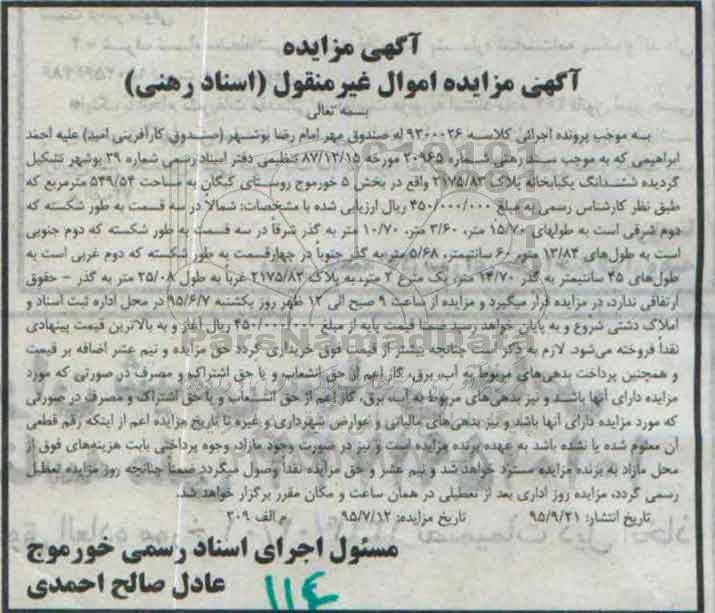 آگهی مزایده
آگهی مزایده اموال غیرمنقول (اسناد رهنی)
بسمه تعالی
به موجب پرونده اجرائی کلاسه ۹۳۰۰۰۲۶ له صندوق مهر امام رضا بوشهر (صندوق کارآفرینی امید) علیه احمد
ابراهیمی که به موجب سند رهنی شماره ۲۰۹۶۵ مورخه ۸۷/۱۲/۱۵ تنظیمی دفتر اسناد رسمی شماره ۳۹ بوشهر تشکیل
گردیده ششدانگ یکبابخانه پلاک ۲۱۷۵/۸۳ واقع در بخش ۵ خورموج روستای کبگان به مساحت ۵۴۹/۵۴ مترمربع که
طبق نظر کارشناس رسمی به مبلغ ۴۵۰/۰۰۰/۰۰۰ ریال ارزیابی شده با مشخصات: شمالا در سه قسمت به طور شکسته که
دوم شرقی است به طولهای ۱۵/۷۰ متر، ۳/۶۰ متر، ۱۰/۷۰ متر به گذر شرقاً در سه قسمت به طور شکسته که دوم جنوبی
است به طول‌های ۱۳/۸۴ متر، ۶۰ سانتیمتر، ۵/۶۸ متر به گذر جنوباً در چهارقسمت به طور شکسته که دوم غربی است به
طول‌های ۴۵ سانتیمتر به گذر ۱۴/۷۰ متر، یک متر، ۲ متر، به پلاک ۲۱۷۵/۸۲ غرباً به طول ۲۵/۰۸ متر به گذر - حقوق
ارتفاقی ندارد، در مزایده قرار میگیرد و مزایده از ساعت ۹ صبح الی ۱۲ ظهر روز یکشنبه ۹۵/۶/۷ در محل اداره ثبت اسناد و
املاک دشتی شروع و به پایان خواهد رسید ضمنا قیمت پایه از مبلغ ۴۵۰/۰۰۰/۰۰۰ ریال آغاز و به بالاترین قیمت پیشنهادی
نقداً فروخته می‌شود. لازم به ذکر است چنانچه بیشتر از قیمت فوق خریداری گردد حق مزایده و نیم عشر اضافه بر قیمت
و همچنین پرداخت بدهی‌های مربوط به آب، برق، گاز اعم از حق انشعاب و یا حق اشتراک و مصرف در صورتی که مورد
مزایده دارای آنها باشد و نیز بدهی‌های مربوط به آب، برق، گاز اعم از حق انشعاب و یا حق اشتراک و مصرف در صورتی
که مورد مزایده دارای آنها باشد و نیز بدهی‌های مالیاتی و عوارض شهرداری و غیره تا تاریخ مزایده اعم از اینکه رقم قطعی
آن معلوم شده یا نشده باشد به عهده برنده مزایده است و نیز در صورت وجود مازاد، وجوه پرداختی بابت هزینه‌های فوق از
محل مازاد به برنده مزایده مسترد خواهد شد و نیم عشر و حق مزایده نقداً وصول میگردد ضمناً چنانچه روز مزایده تعطیل
رسمی گردد، مزایده روز اداری بعد از تعطیلی در همان ساعت و مکان مقرر برگزار خواهد شد.
تاریخ انتشار: ۹۵/۹/۲۱ تاریخ مزایده: ۹۵/۷/۱۲ م الف ۲۰۹
مسئول اجرای اسناد رسمی خورموج
عادل صالح احمدی
۱۱۴
ParsNamadData